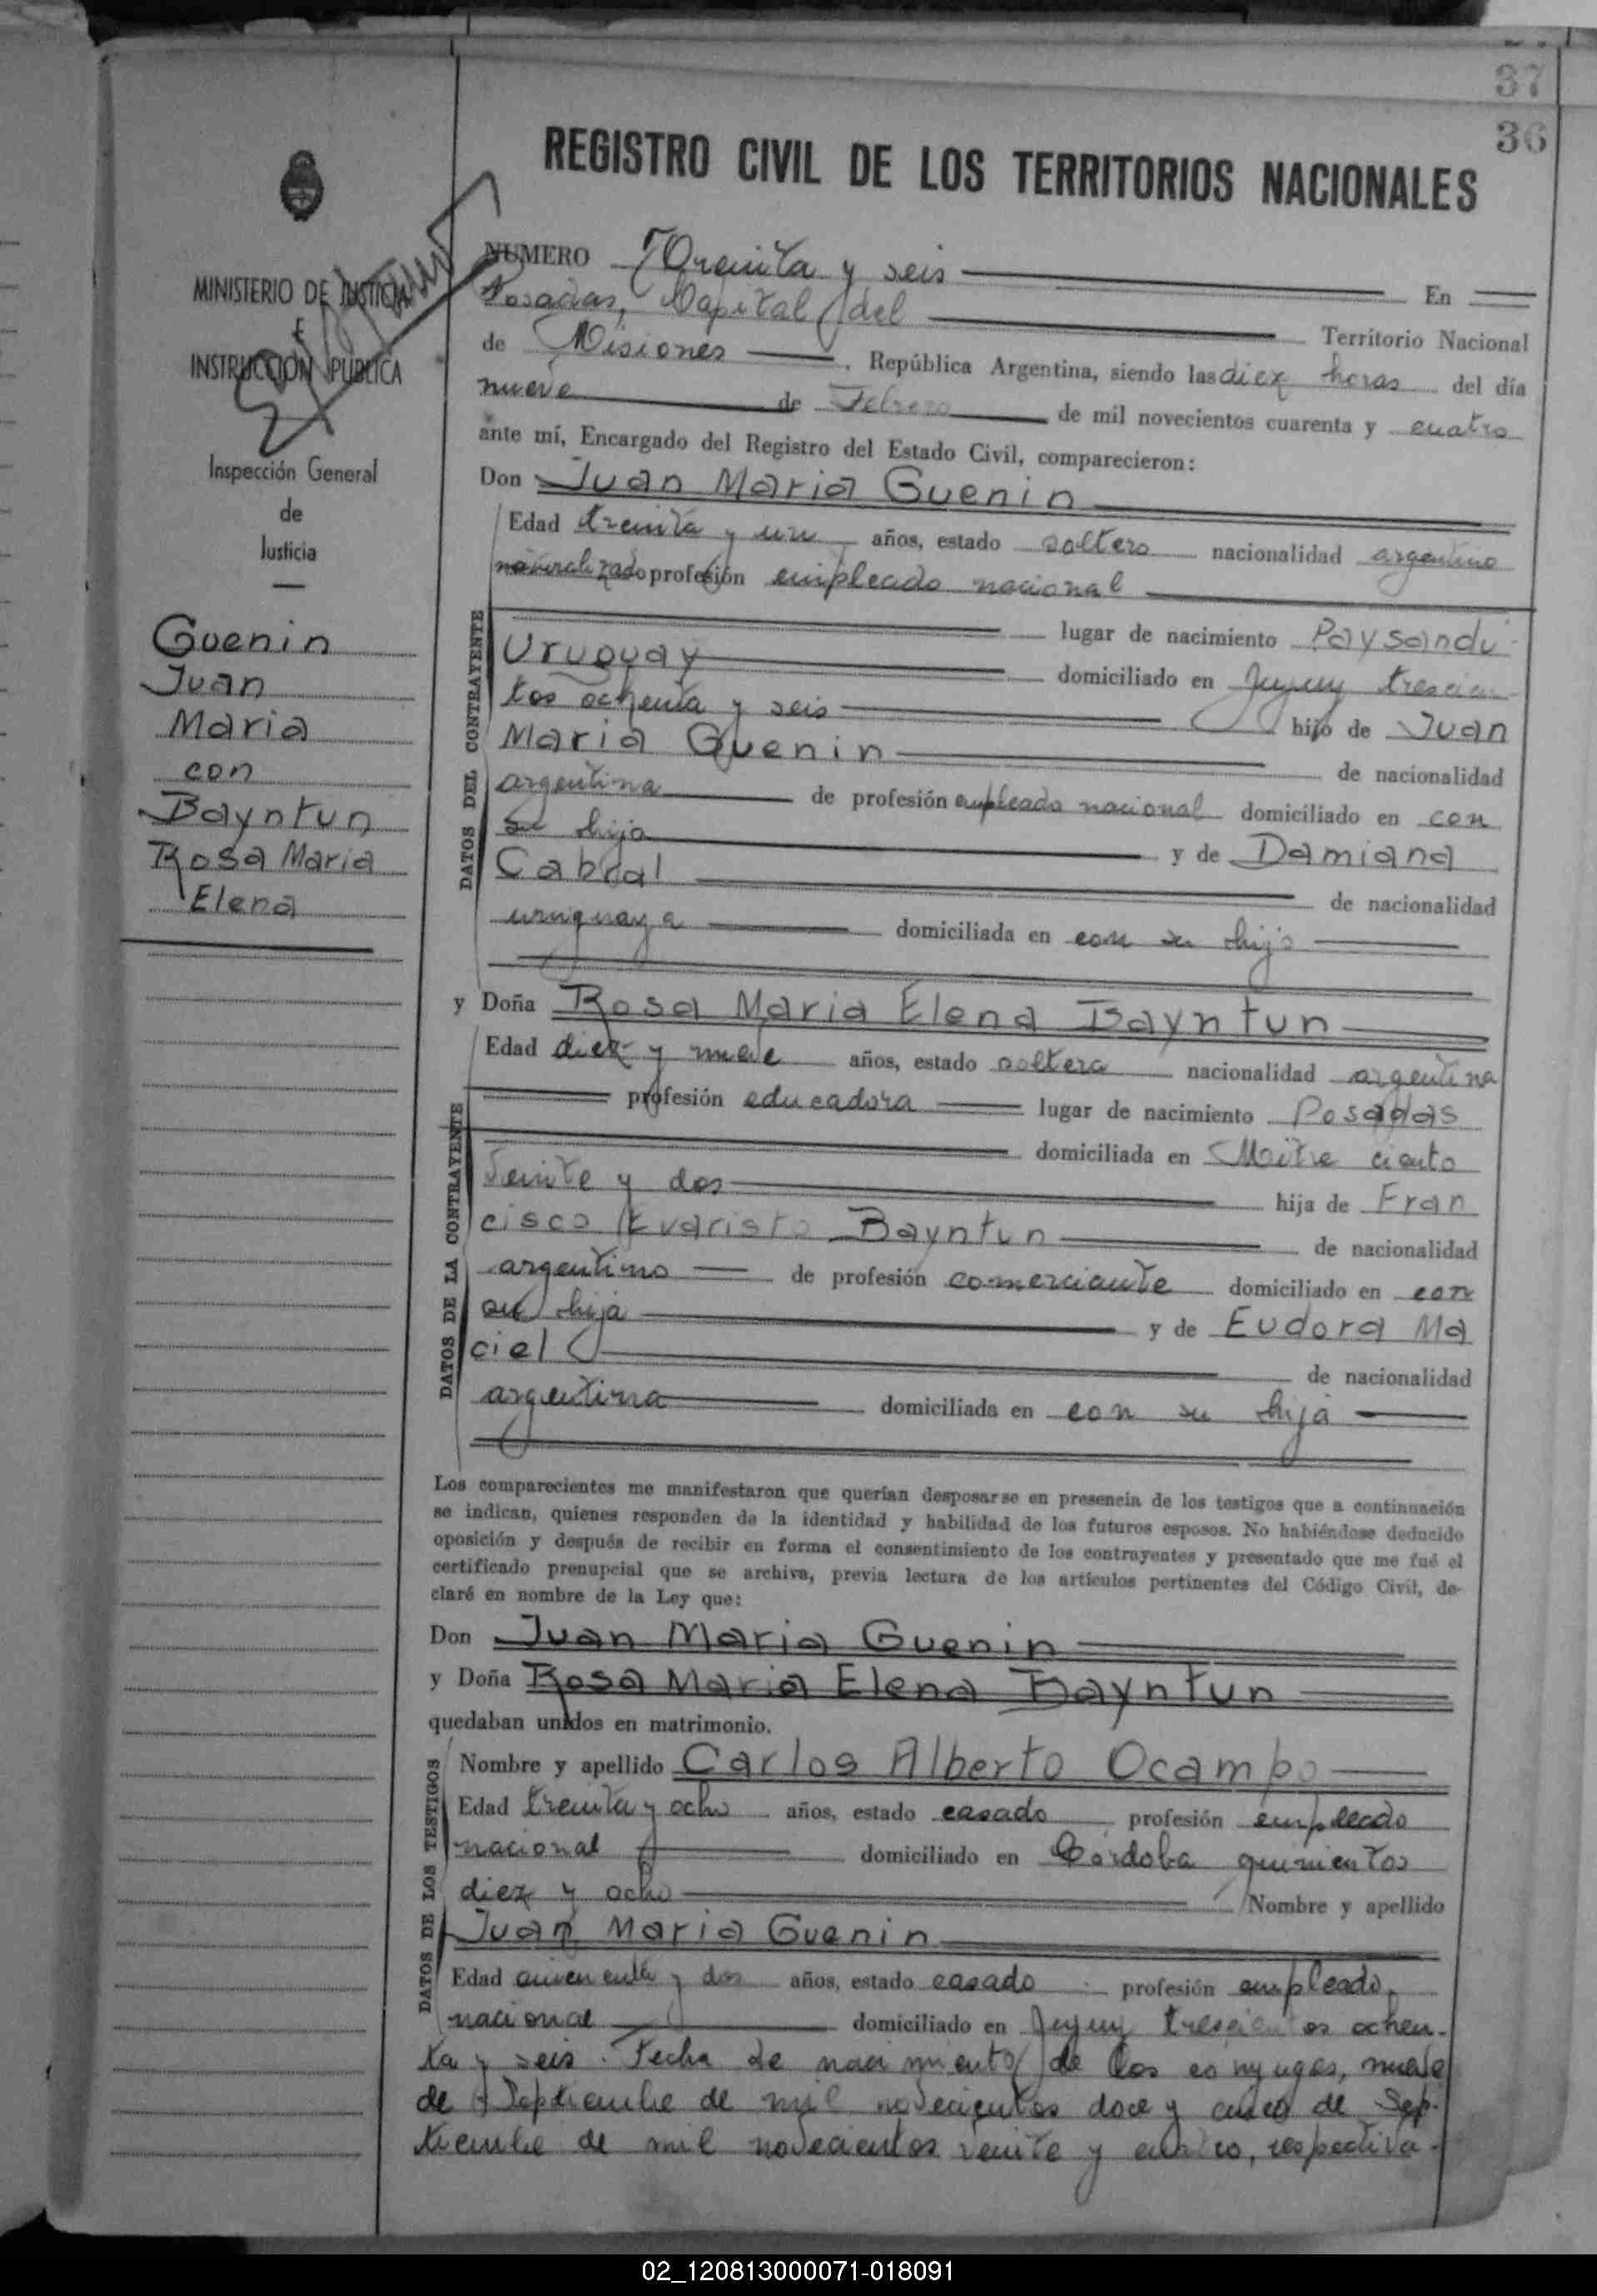 37
36
REGISTRO CIVIL DE LOS TERRITORIOS NACIONALES
MINISTERIO DE JUSTICIA
E
INSTRUCCIÓN PÚBLICA
Inspección General
de
Justicia
Guenin
Juan
Maria
con
Bayntun
Rosa Maria
Elena
NUMERO Treinta y seis En
Posadas, Capital del Territorio Nacional
de Misiones, República Argentina, siendo las diez horas del día
nueve de Febrero de mil novecientos cuarenta y cuatro
ante mí, Encargado del Registro del Estado Civil, comparecieron:
Don Juan Maria Guenin
DATOS DEL CONTRAYENTE
Edad treinta y un años, estado soltero nacionalidad argentino
naturalizado profesión empleado nacional
lugar de nacimiento Paysandú
Uruguay domiciliado en Jujuy trescien
tos ochenta y seis hijo de Juan
Maria Guenin de nacionalidad
argentina de profesión empleado nacional domiciliado en con
su hijo y de Damiana
Cabral de nacionalidad
uruguaya domiciliada en con su hijo
y Doña Rosa Maria Elena Bayntun
DATOS DE LA CONTRAYENTE
Edad diez y nueve años, estado soltera nacionalidad argentina
profesión educadora lugar de nacimiento Posadas
domiciliada en Mitre ciento
veinte y dos hija de Fran
cisco Evaristo Bayntun de nacionalidad
argentino de profesión comerciante domiciliado en con
su hija y de Eudora Ma
ciel de nacionalidad
argentina domiciliada en con su hija
Los comparecientes me manifestaron que querían desposarse en presencia de los testigos que a continuación
se indican, quienes responden de la identidad y habilidad de los futuros esposos. No habiéndose deducido
oposición y después de recibir en forma el consentimiento de los contrayentes y presentado que me fué el
certificado prenupcial que se archiva, previa lectura de los artículos pertinentes del Código Civil, de-
claré en nombre de la Ley que:
Don Juan Maria Guenin
y Doña Rosa Maria Elena Bayntun
quedaban unidos en matrimonio.
DATOS DE LOS TESTIGOS
Nombre y apellido Carlos Alberto Ocampo
Edad treinta y ocho años, estado casado profesión empleado
nacional domiciliado en Córdoba quinientos
diez y ocho Nombre y apellido
Juan Maria Guenin
Edad cincuenta y dos años, estado casado profesión empleado
nacional domiciliado en Jujuy trescientos ochen-
ta y seis. Fecha de nacimiento de los cónyuges, nueve
de Septiembre de mil novecientos doce y cinco de Sep-
tiembre de mil novecientos veinte y cuatro, respectiva-
02_120813000071-018091